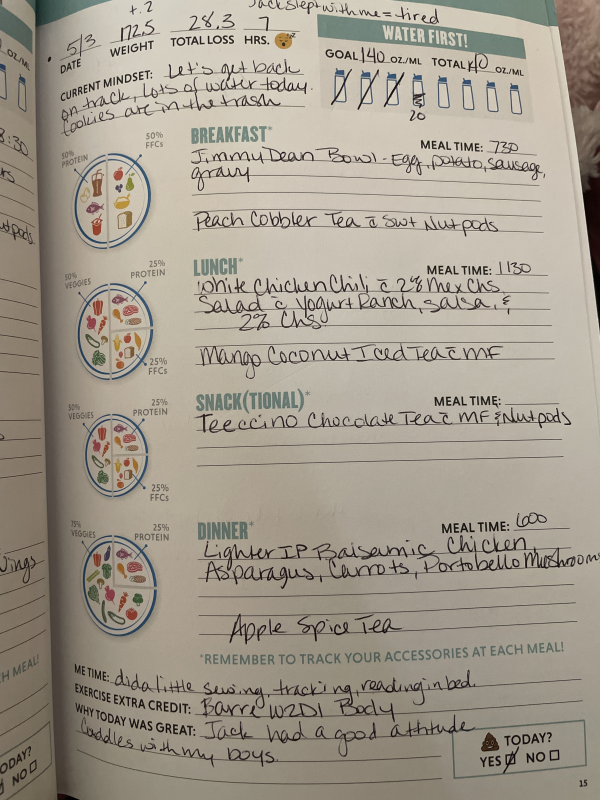 +.2
Jack slept with me = tired
5/3 172.5 28.3 7
DATE WEIGHT TOTAL LOSS HRS.
WATER FIRST!
GOAL 140 OZ/ML TOTAL OZ/ML
20
CURRENT MINDSET: Let's get back
on track, lots of water today.
Cookies are in the trash
BREAKFAST*
MEAL TIME: 730
50% PROTEIN
50% FFCs
Jimmy Dean Bowl - Egg, potato, sausage,
gravy
Peach Cobbler Tea c̄ Swt Nutpods
LUNCH*
MEAL TIME: 1130
50% VEGGIES
25% PROTEIN
25% FFCs
White Chicken Chili c̄ 2% Mex Chs
Salad c̄ Yogurt Ranch, salsa, &
2% Chs
Mango Coconut Iced Tea c̄ MF
SNACK(TIONAL)*
MEAL TIME:
50% VEGGIES
25% PROTEIN
25% FFCs
Teeccino Chocolate Tea c̄ MF & Nutpods
DINNER*
MEAL TIME: 600
75% VEGGIES
25% PROTEIN
Lighter IP Balsamic Chicken,
Asparagus, Carrots, Portobello Mushrooms
Apple Spice Tea
*REMEMBER TO TRACK YOUR ACCESSORIES AT EACH MEAL!
ME TIME: did a little sewing, tracking, reading in bed.
EXERCISE EXTRA CREDIT: Barre W2D1 Body
WHY TODAY WAS GREAT: Jack had a good attitude
Cuddles with my boys.
TODAY?
YES NO
15
OZ/ML
8:30
nutpods
wings
H MEAL!
ODAY?
NO